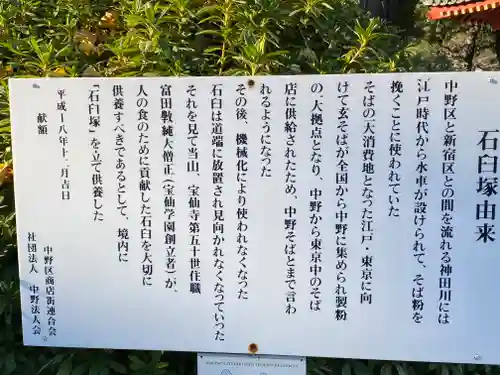 石臼塚由来
中野区と新宿区との間を流れる神田川には
江戸時代から水車が設けられて、そば粉を
挽くことに使われていた
そばの一大消費地となった江戸・東京に向
けて玄そばが全国から中野に集められ製粉
の一大拠点となり、中野から東京中のそば
店に供給されたため、中野そばとまで言わ
れるようになった
その後、機械化により使われなくなった
石臼は道端に放置され見向かれなくなっていった
それを見て当山、宝仙寺第五十世住職
富田斅純大僧正(宝仙学園創立者)が、
人の食のために貢献した石臼を大切に
供養すべきであるとして、境内に
『石臼塚』を立て供養した
平成一八年十一月吉日
献額
中野区商店街連合会
社団法人 中野法人会